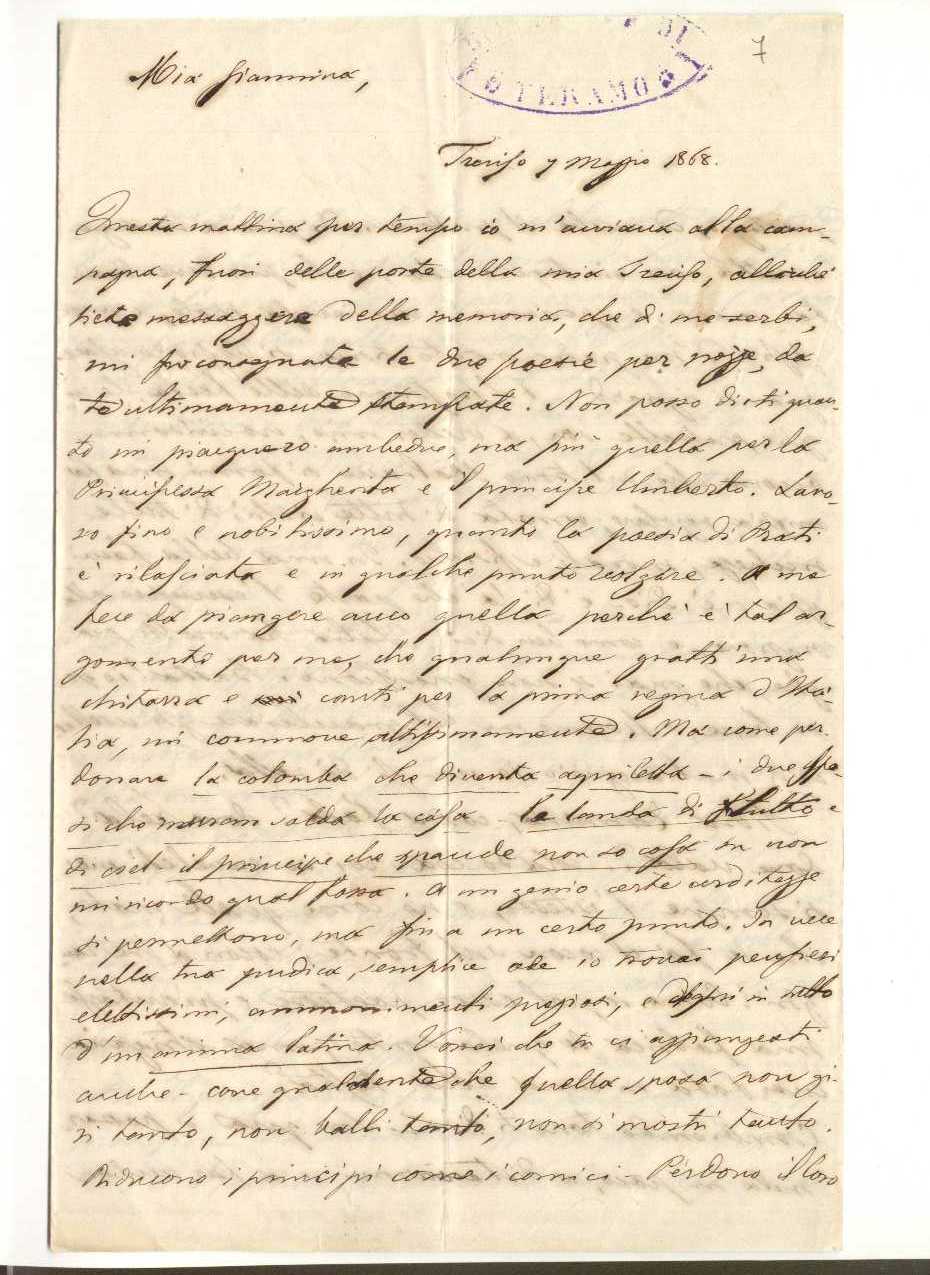 7
DI
TERAMO
Mia Giannina,
Treviso 7 Maggio 1868.
Questa mattina per tempo io m'avviava alla cam-
pagna, fuori delle porte della mia Treviso, allorchè
liete messaggere della memoria, che di me serbi,
mi fur consegnate le due poesie per nozze, da
te ultimamente stampate. Non posso dirti quan-
to mi piacquero ambedue, ma più quella per la
Principessa Margherita e il principe Umberto. Lavo-
ro fino e nobilissimo, quanto la poesia di Prati
è rilasciata e in qualche punto volgare. A me
fece da piangere anco quella perchè è tal ar-
gomento per me, che qualunque gratti una
chitarra e canti per la prima regina d'Ita-
lia, mi commove altissimamente. Ma come per-
donare la colomba che diventa aquiletta - i due spo-
si che muran salda la casa - la landa, di flutto e
di ciel - il principe che spande non so cosa su non
mi ricordo qual fossa. A un genio certe arditezze
si permettono, ma fin a un certo punto. In vece
nella tua pudica, semplice ode io trovai pensieri
elettissimi, ammonimenti preziosi, e in tutto
d'un anima latina. Vorrei che tu ci aggiungesti
anche - che quella sposa non gi-
ri tanto, non balli tanto, non si mostri tanto.
Riducono i principi come i comici - Perdono il loro